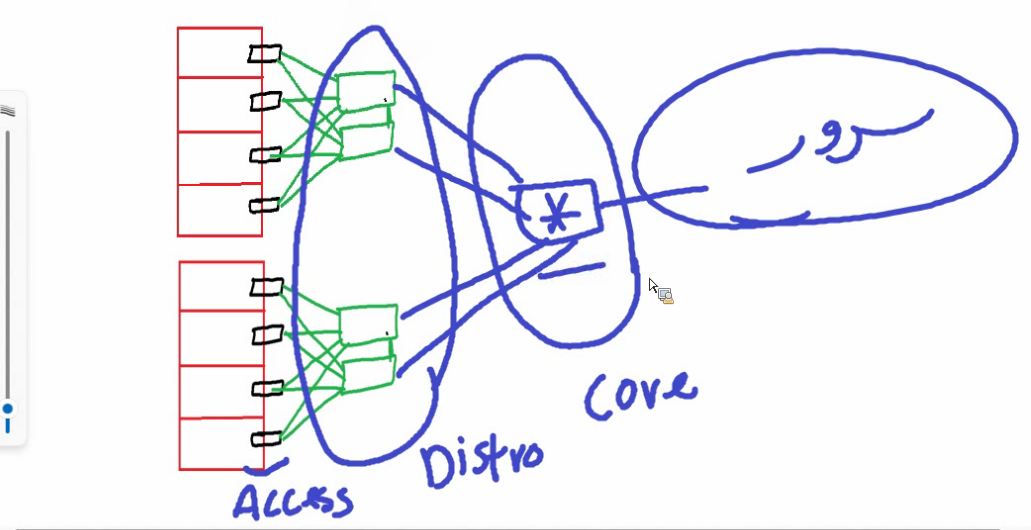 Core
Distro
Access